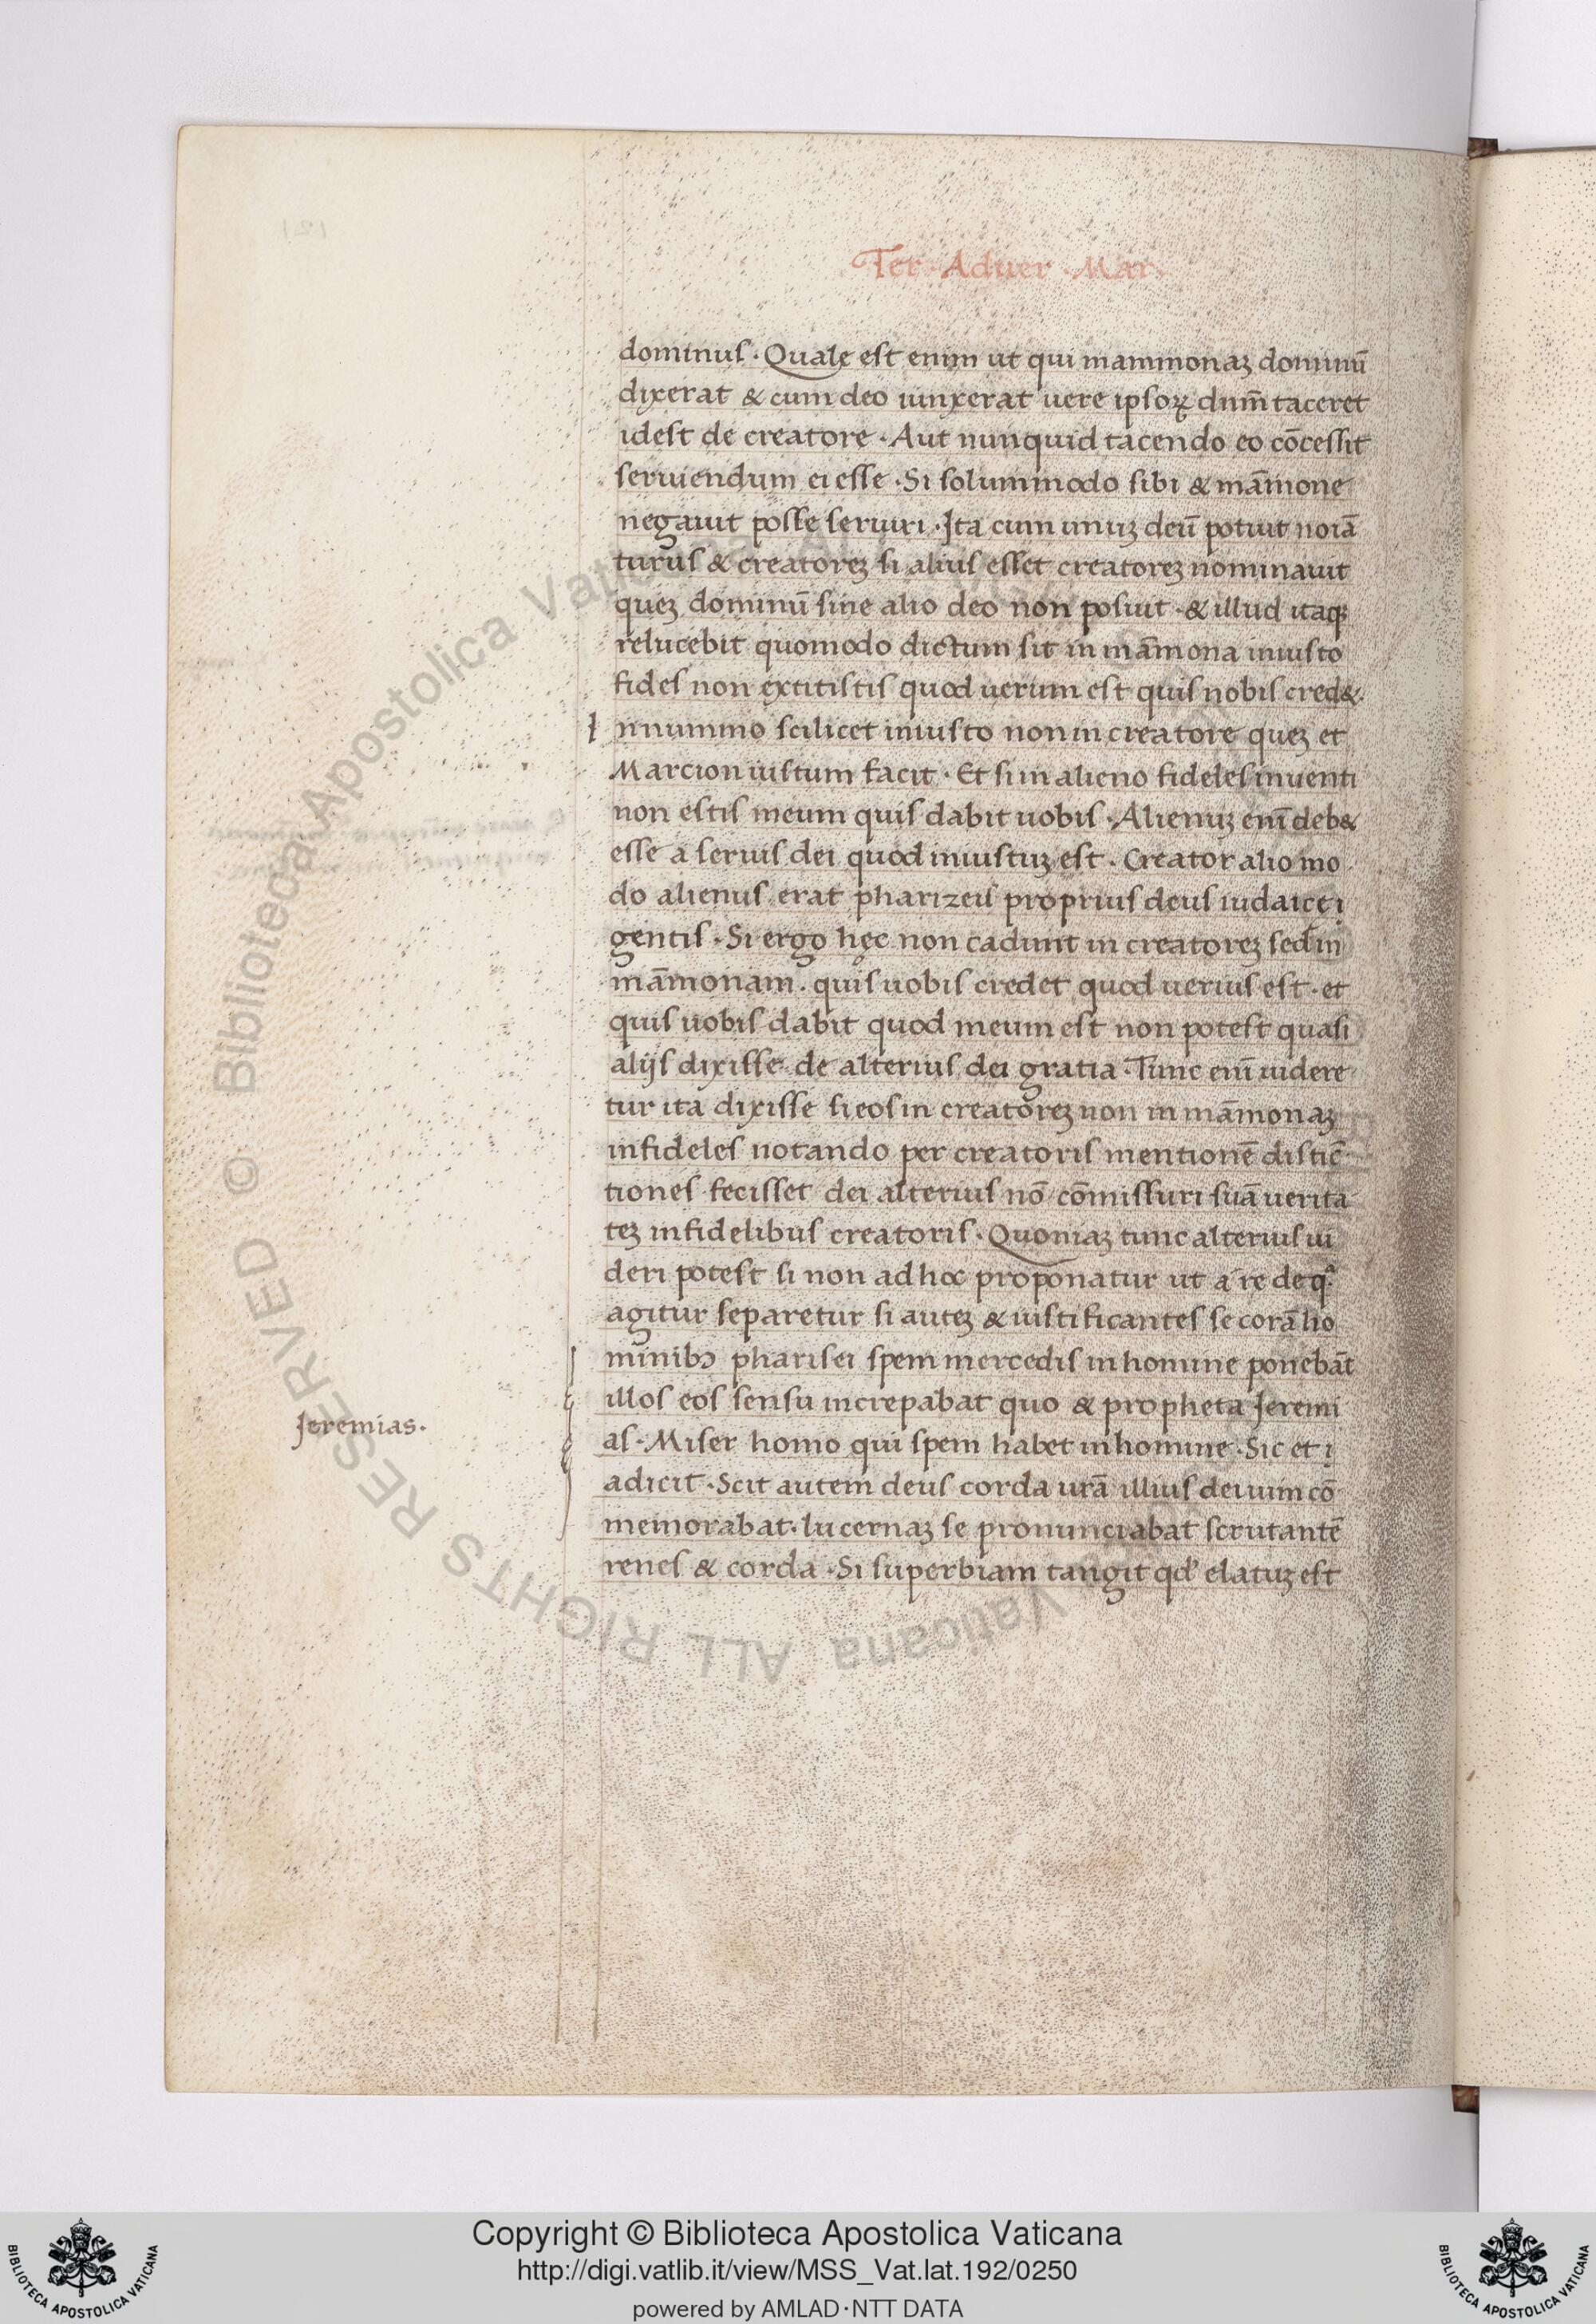 Ter · Aduer · Mar ·
dominus · Quale est enim ut qui mammonaꝫ dominū
dixerat & cum deo iunxerat uere ipsoꝝ dnm̄ taceret
idest de creatore · Aut nunquid tacendo eo cōcessit
seruiendum ei esse · Si solummodo sibi & mām̄one
negauit posse seruiri · Ita cum unuꝫ deū potuit noīā
turus & creatoreꝫ si alius esset creatoreꝫ nominauit
queꝫ dominū sine alio deo non posuit · & illud itaqꝫ
relucebit quomodo dictum sit in mām̄ona iniusto
fides non extitistis quod uerum est quis nobis cred&·
Innummo scilicet iniusto non in creatore queꝫ et
Marcion iustum facit · Et si in alieno fideles inuenti
non estis meum quis dabit uobis · Alienuꝫ enī deb&
esse a seruis dei quod iniustuꝫ est · Creator alio mo
do alienus erat pharizeis proprius deus iudaice i
gentis · Si ergo hęc non cadunt in creatoreꝫ sed in
mām̄onam · quis uobis credet quod uerius est · et
quis uobis dabit quod meum est non potest quasi
alijs dixisse de alterius dei gratia · Tunc enī uidere
tur ita dixisse si eos in creatoreꝫ non in mām̄onaꝫ
infideles notando per creatoris mentionē distic̄
tiones fecisset dei alterius nō cōmissuri suā uerita
teꝫ infidelibus creatoris · Quoniaꝫ tunc alterius ui
deri potest si non ad hoc proponatur ut a re de qª
agitur separetur si auteꝫ & iustificantes se corā ho
minibꝰ pharisei spem mercedis in homine ponebāt
illos eos sensu increpabat quo & propheta Jeremi
as · Miser homo qui spem habet in homine · Sic et i
Jeremias ·
adicit · Scit autem deus corda urā illius dei uim cō
memorabat · lucernaꝫ se pronunciabat scrutantē
renes & corda · Si superbiam tangit qd' elatuꝫ est
Copyright © Biblioteca Apostolica Vaticana
http://digi.vatlib.it/view/MSS_Vat.lat.192/0250
powered by AMLAD·NTT DATA
BIBLIOTECA APOSTOLICA VATICANA
BIBLIOTECA APOSTOLICA VATICANA
© Biblioteca Apostolica Vaticana ALL RIGHTS RESERVED